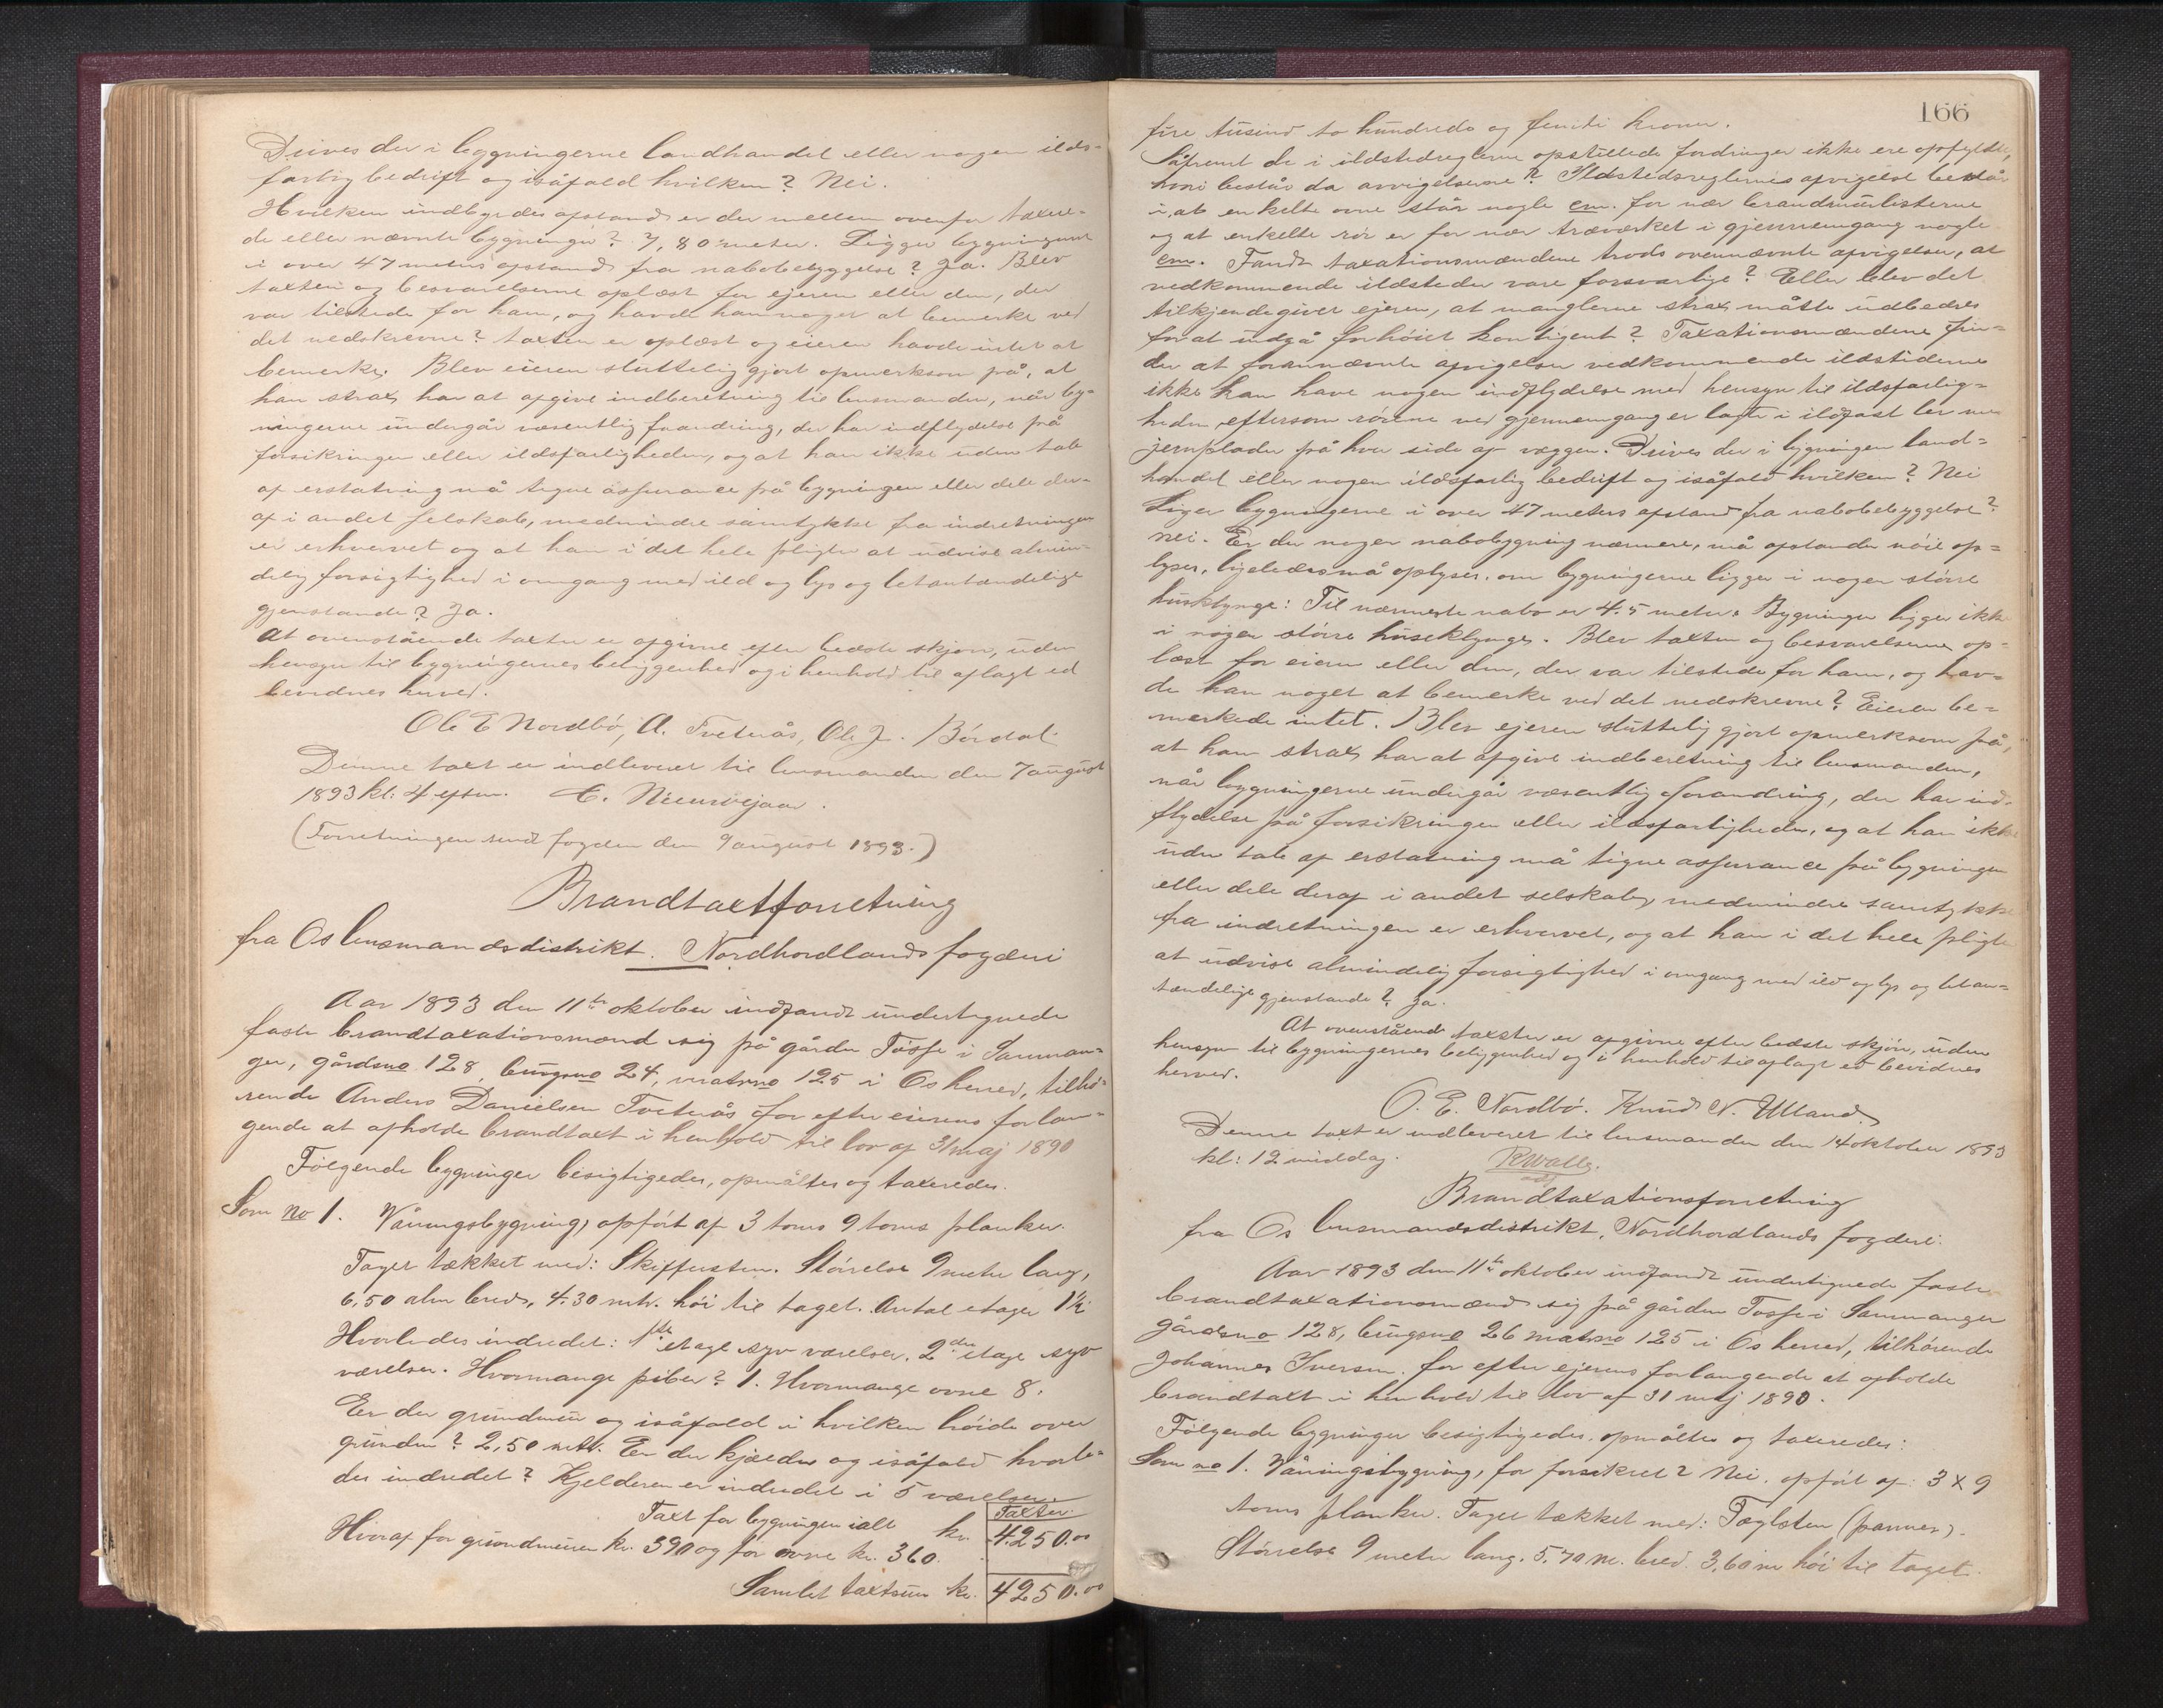 Drives der i bygningerne landhandel eller nogen ilds-
farlig bedrift og isåfald hvilken? Nei.
Hvilken indbyrdes afstand er der mellem ovenfor taxere-
de eller nævnte bygninger? 7,80 meter. Ligger bygningerne
i over 47 meters afstand fra nabobebyggelse? Ja. Blev
taxten og besvarelserne oplæst for ejeren eller den, der
var tilstede for ham, og havde han noget at bemerke ved
det nedskrevne? taxten er oplæst og eieren havde intet at
bemerke. Blev eieren sluttelig gjort opmerksom på, at
han strax har at afgive indberetning til lensmanden, når byg-
ningerne undergår væsentlig foandring, der har indflydelse på
forsikringen eller ildsfarligheden, og at han ikke uden tab
af erstatning må tegne assurance på bygningen eller dele der-
af i andet selskab, medmindre samtykke fra indretningen
er erhvervet og at han i det hele pligter at udvise almin-
delig forsigtighed i omgang med ild og lys og letantændelige
gjenstande? Ja.
At ovenstående taxter er afgivne efter bedste skjøn, uden
hensyn til bygningernes beliggenhed og i henhold til aflagt ed
bevidnes herved.
Ole E Nordbö, A. Tveterås, Ole J. Bördal
Denne taxt er indleveret til lensmanden den 7 august
1893 kl: 4 efm.
(Forretningen sendt fogden den 9 august 1893.)
Brandtaxtforretning
fra Os lensmandsdistrikt. Nordhordlands fogderi
Aar 1893 den 11te oktober indfandt undertegnede
faste brandtaxationsmænd sig på gården Tösse i Samnan-
ger, gårdsno 128, brugsno 24, matrno 125 i Os herred, tilhö-
rende Anders Danielsen Tveterås for efter eierens forlan-
gende at afholde brandtaxt i henhold til lov af 31 maj 1890
Fölgende bygninger besigtigedes, opmåltes og taxeredes.
Som no 1. Våningsbygning, opfört af 3 toms 9 toms planker.
Taget tækket med: Skiffersten. Störrelse 9 meter lang,
6,50 alen bred, 4.30 mtr. höi til taget. Antal etager 1½
Hvorledes indredet: 1ste etage syv værelser, 2den etage syv
værelser. Hvormange piber? 1. Hvormange ovne 8.
Er der grundmur og isåfald i hvilken höide over
grunden? 2,50 mtr. Er der kjælder og isåfald hvorle-
des indredet? Kjelderen er indredet i 5 værelser.
Taxter.
Taxt for bygningen ialt kr. 4250.00
Hvoraf for grundmuren kr. 390 og for ovne kr. 360.
Samlet taxtsum kr. 4250.00
166
fire tusind to hundrede og femti kroner.
Såfremt de i ildstedreglerne opstillede fordringer ikke ere opfyldte,
hvori består da avvigelserne? Ildstedsreglernes afvigelse består
i, at enkelte ovne står nogle cm. for nær brandmurlisterne
og at enkelte rör er for nær træværket i gjennemgang nogle
cm. Fandt taxationsmændene trods ovennævnte afvigelser, at
vedkommende ildsteder vare forsvarlige? Eller blev det
tilkjendegivet ejeren, at manglerne strax måtte udbedres
for at undgå forhöiet kontigent? Taxationsmændene fin-
der at forannævnte afvigelser vedkommende ildstederne
ikke kan have nogen indflydelse med hensyn til ildsfarlig-
heden, eftersom rörene ved gjennemgang er lagte i ildfast ler med
jernplader på hver side af væggen. Drives der i bygningen land-
handel eller nogen ildsfarlig bedrift og isåfald hvilken? Nei
Ligger bygningerne i over 47 meters afstand fra nabobebyggelse?
nei. Er der nogen nabobygning nærmere, må afstanden nöie op-
lyses, ligeledes må oplyses, om bygningerne ligger i nogen större
husklynge: Til nærmeste nabo er 4.5 meter. Bygningen ligger ikke
i nogen större huseklynge. Blev taxten og besvarelserne op-
læst for eieren eller den, der var tilstede for ham, og hav-
de han noget at bemerke ved det nedskrevne? Eieren be-
merkede intet. Blev ejeren sluttelig gjort opmerksom på,
at han strax har at afgive indberetning til lensmanden,
når bygningerne undergår væsentlig forandring, der har ind-
flydelse på forsikringen eller ildsfarligheden, og at han ikke
uden tab af erstatning må tegne assurance på bygningen
eller dele deraf i andet selskab, medmindre samtykke
fra indretningen er erhvervet, og at han i det hele pligter
at udvise almindelig forsigtighed i omgang med ild og lys og letan-
tændelige gjenstande? Ja.
At ovenstående taxter er afgivne efter bedste skjön, uden
hensyn til bygningernes beliggenhed og i henhold til aflagt ed bevidnes
herved.
O. E. Nordbö. Knud N. Ulland
Denne taxt er indleveret til lensmanden den 14 oktober 1893
kl: 12 middag.
Brandtaxationsforretning
fra Os lensmandsdistrikt, Nordhordlands fogderi.
Aar 1893 den 11te oktober indfandt undertegnede faste
brandtaxationsmænd sig på gården Tosse i Samnanger
gårdsno 128, brugsno 26 matrno 125 i Os herred, tilhörende
Johannes Iversen, for efter ejerens forlangende at afholde
brandtaxt i henhold til lov af 31 maj 1890.
Fölgende bygninger besigtigedes, opmåltes og taxeredes:
Som no 1. Våningsbygning, for forsikret? Nei. opfört af: 3 x 9
toms planker. Taget tækket med: Taglsten (panner).
Störrelse 9 meter lang. 5.70 m. bred. 3,60 m höi til taget.